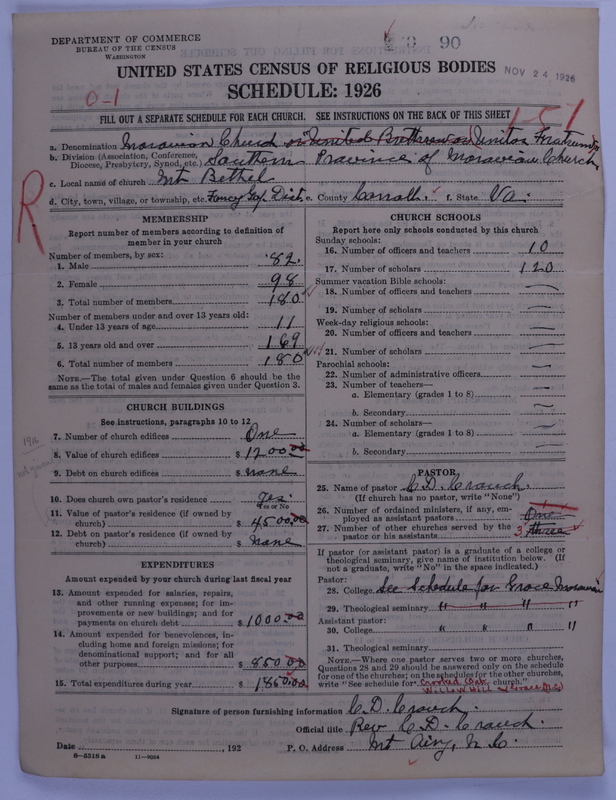 DEPARTMENT OF COMMERCE
BUREAU OF THE CENSUS
WASHINGTON
90
UNITED STATES CENSUS OF RELIGIOUS BODIES
NOV 24 1926
SCHEDULE: 1926
0-1
FILL OUT A SEPARATE SCHEDULE FOR EACH CHURCH. SEE INSTRUCTIONS ON THE BACK OF THIS SHEET
1-51
a. Denomination Moravian Church or "United Brethren or Unitas Fratrum"
b. Division (Association, Conference, Diocese, Presbytery, Synod, etc.) Southern Province of Moravian Church
c. Local name of church Mt Bethel
d. City, town, village, or township, etc. Fancy Gap Dist. e. County Carroll. f. State Va.
R
MEMBERSHIP
Report number of members according to definition of member in your church
Number of members, by sex:
1. Male 82.
2. Female 98
3. Total number of members 180
Number of members under and over 13 years old:
4. Under 13 years of age 11
5. 13 years old and over 169
6. Total number of members 180
NOTE.—The total given under Question 6 should be the same as the total of males and females given under Question 3.
CHURCH BUILDINGS
See instructions, paragraphs 10 to 12
7. Number of church edifices One
8. Value of church edifices $ 1200.00
9. Debt on church edifices $ none
10. Does church own pastor's residence Yes.
Yes or No
11. Value of pastor's residence (if owned by church) $ 4500.00
12. Debt on pastor's residence (if owned by church) $ none
EXPENDITURES
Amount expended by your church during last fiscal year
13. Amount expended for salaries, repairs, and other running expenses; for improvements or new buildings; and for payments on church debt $ 1000.00
14. Amount expended for benevolences, including home and foreign missions; for denominational support; and for all other purposes $ 850.00
15. Total expenditures during year $ 1850.00
CHURCH SCHOOLS
Report here only schools conducted by this church
Sunday schools:
16. Number of officers and teachers 10
17. Number of scholars 120
Summer vacation Bible schools:
18. Number of officers and teachers —
19. Number of scholars —
Week-day religious schools:
20. Number of officers and teachers —
21. Number of scholars —
Parochial schools:
22. Number of administrative officers —
23. Number of teachers—
a. Elementary (grades 1 to 8) —
b. Secondary —
24. Number of scholars—
a. Elementary (grades 1 to 8) —
b. Secondary —
PASTOR
25. Name of pastor C. D. Crouch.
(If church has no pastor, write "None")
26. Number of ordained ministers, if any, employed as assistant pastors One
27. Number of other churches served by the pastor or his assistants 3 three
If pastor (or assistant pastor) is a graduate of a college or theological seminary, give name of institution below. (If not a graduate, write "No" in the space indicated.)
Pastor:
28. College See Schedule for Grace Moravian
29. Theological seminary " " " "
Assistant pastor:
30. College " " " "
31. Theological seminary
NOTE.—Where one pastor serves two or more churches, Questions 28 and 29 should be answered only on the schedule for one of the churches; on the schedules for the other churches, write "See schedule for Crooked Oak church."
Willow Hill
Signature of person furnishing information C. D. Crouch.
Official title Rev. C. D. Crouch.
Date , 192 P. O. Address Mt Airy, N. C.
8—5318a 11—9034